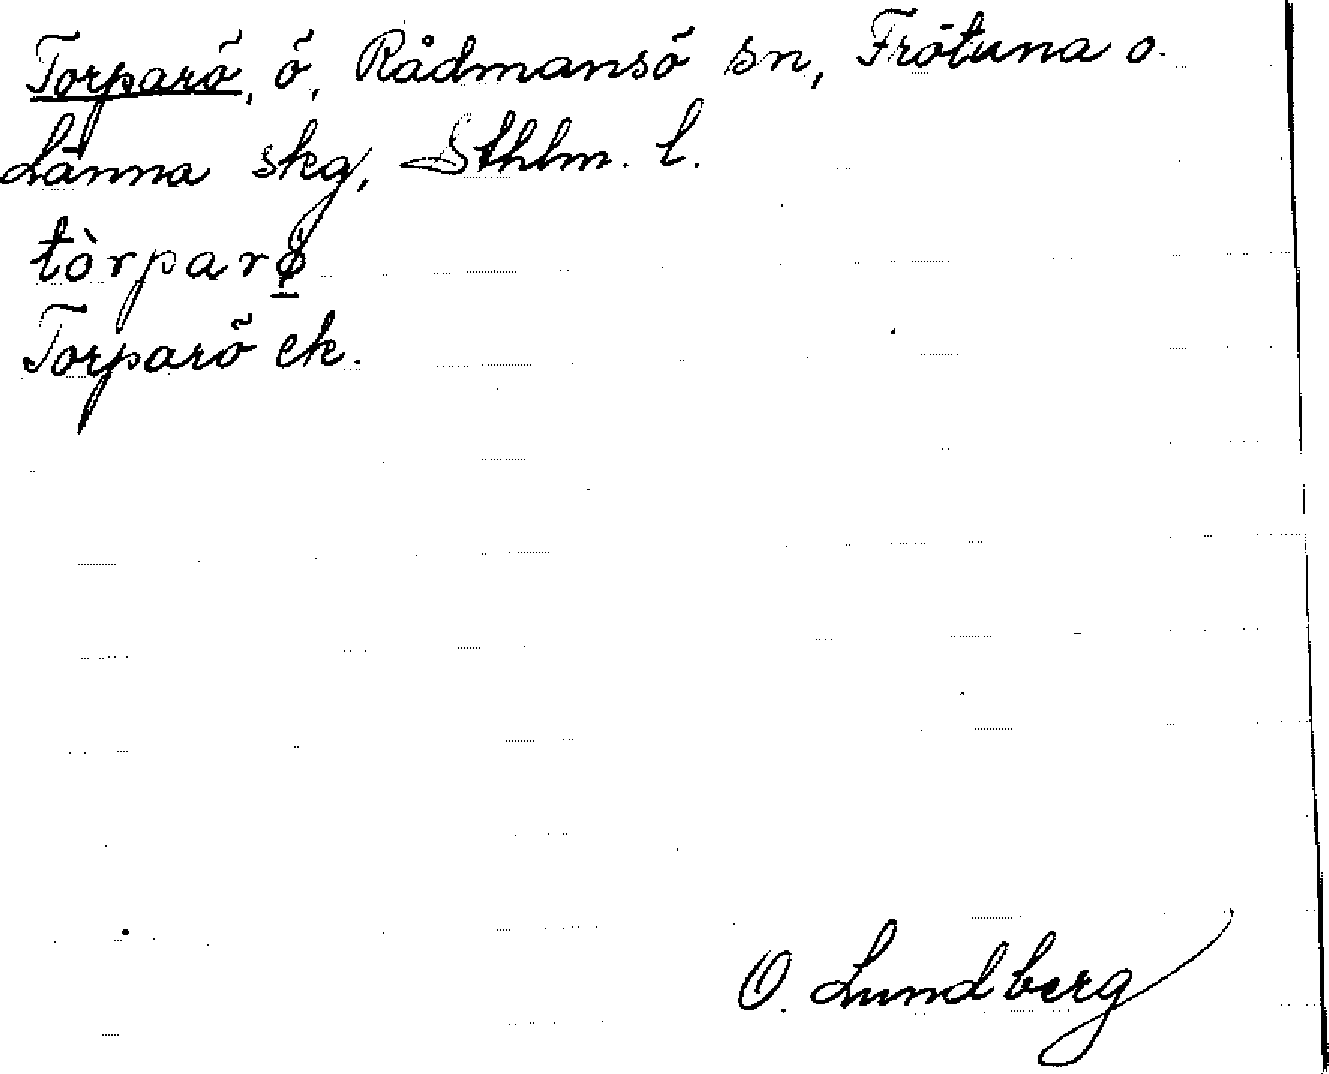 Torparö, ö, Rådmansö sn, Frötuna o.
Länna skg, Sthlm. l.
tòrparø̱
Torparö ek.
O. Lundberg